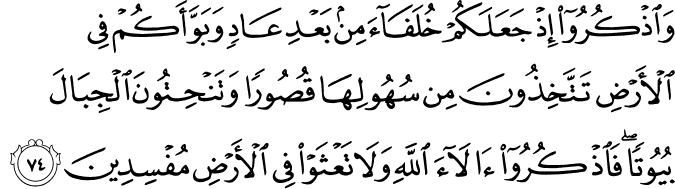 وَٱذْكُرُوٓا۟ إِذْ جَعَلَكُمْ خُلَفَآءَ مِنۢ بَعْدِ عَادٍ وَبَوَّأَكُمْ فِى
ٱلْأَرْضِ تَتَّخِذُونَ مِن سُهُولِهَا قُصُورًا وَتَنْحِتُونَ ٱلْجِبَالَ
بُيُوتًا ۖ فَٱذْكُرُوٓا۟ ءَالَآءَ ٱللَّهِ وَلَا تَعْثَوْا۟ فِى ٱلْأَرْضِ مُفْسِدِينَ ٧٤